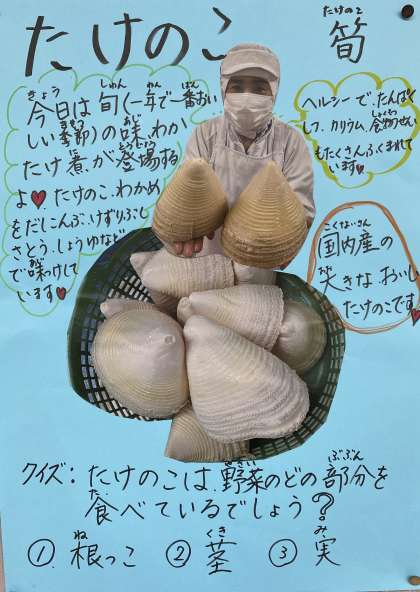 たけのこ 筍
今日は旬(一年で一番おい
しい季節)の味、わか
たけ煮が登場する
よ♥たけのこ、わかめ
をだしこんぶ、けずりぶし
さとう、しょうゆなど
で味つけして
います♥
ヘルシーで、たんぱく
しつ、カリウム、食物せんい
もたくさんふくまれて
います♥
国内産の
大きな おいしい
たけのこです♥
クイズ:たけのこは、野菜のどの部分を
食べているでしょう?
① 根っこ ② 茎 ③ 実